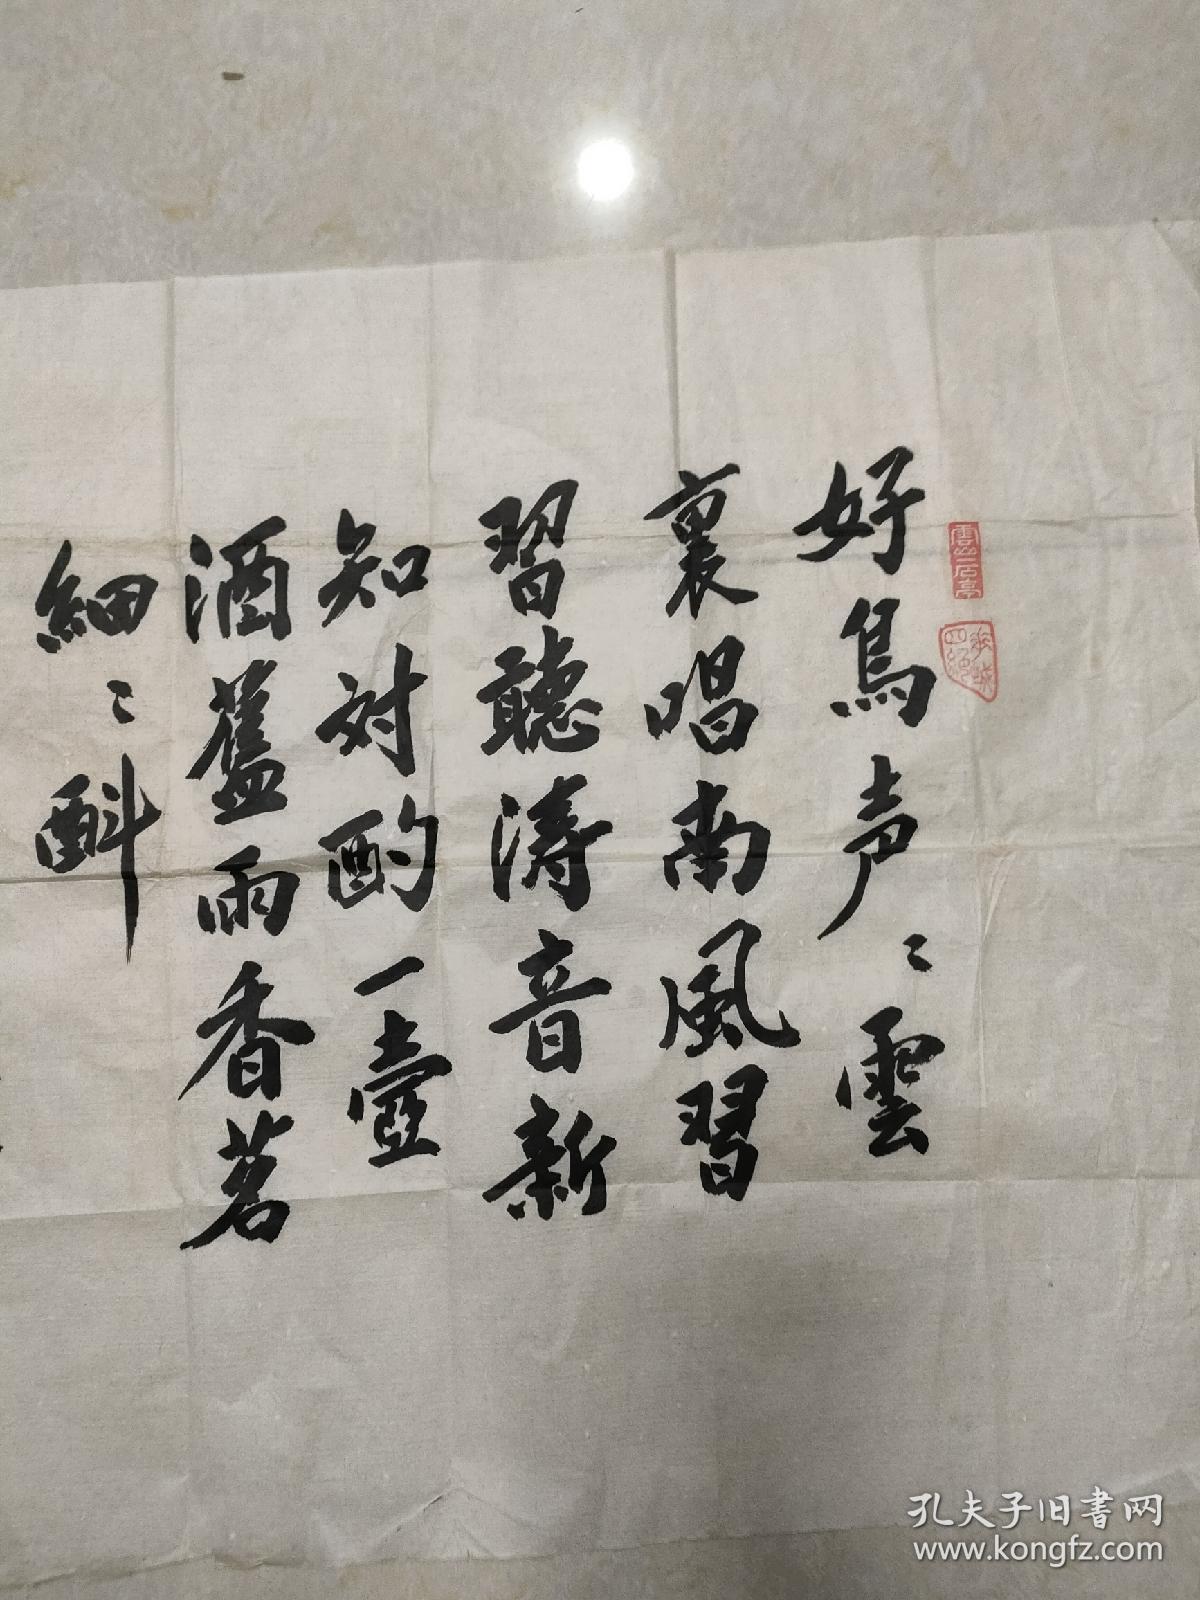 好鳥声〻雲
裏唱南風習
習聽涛音新
知対酌一壺
酒舊雨香茗
細〻斟
雲山石亭
四絕
孔夫子旧书网
www.kongfz.com